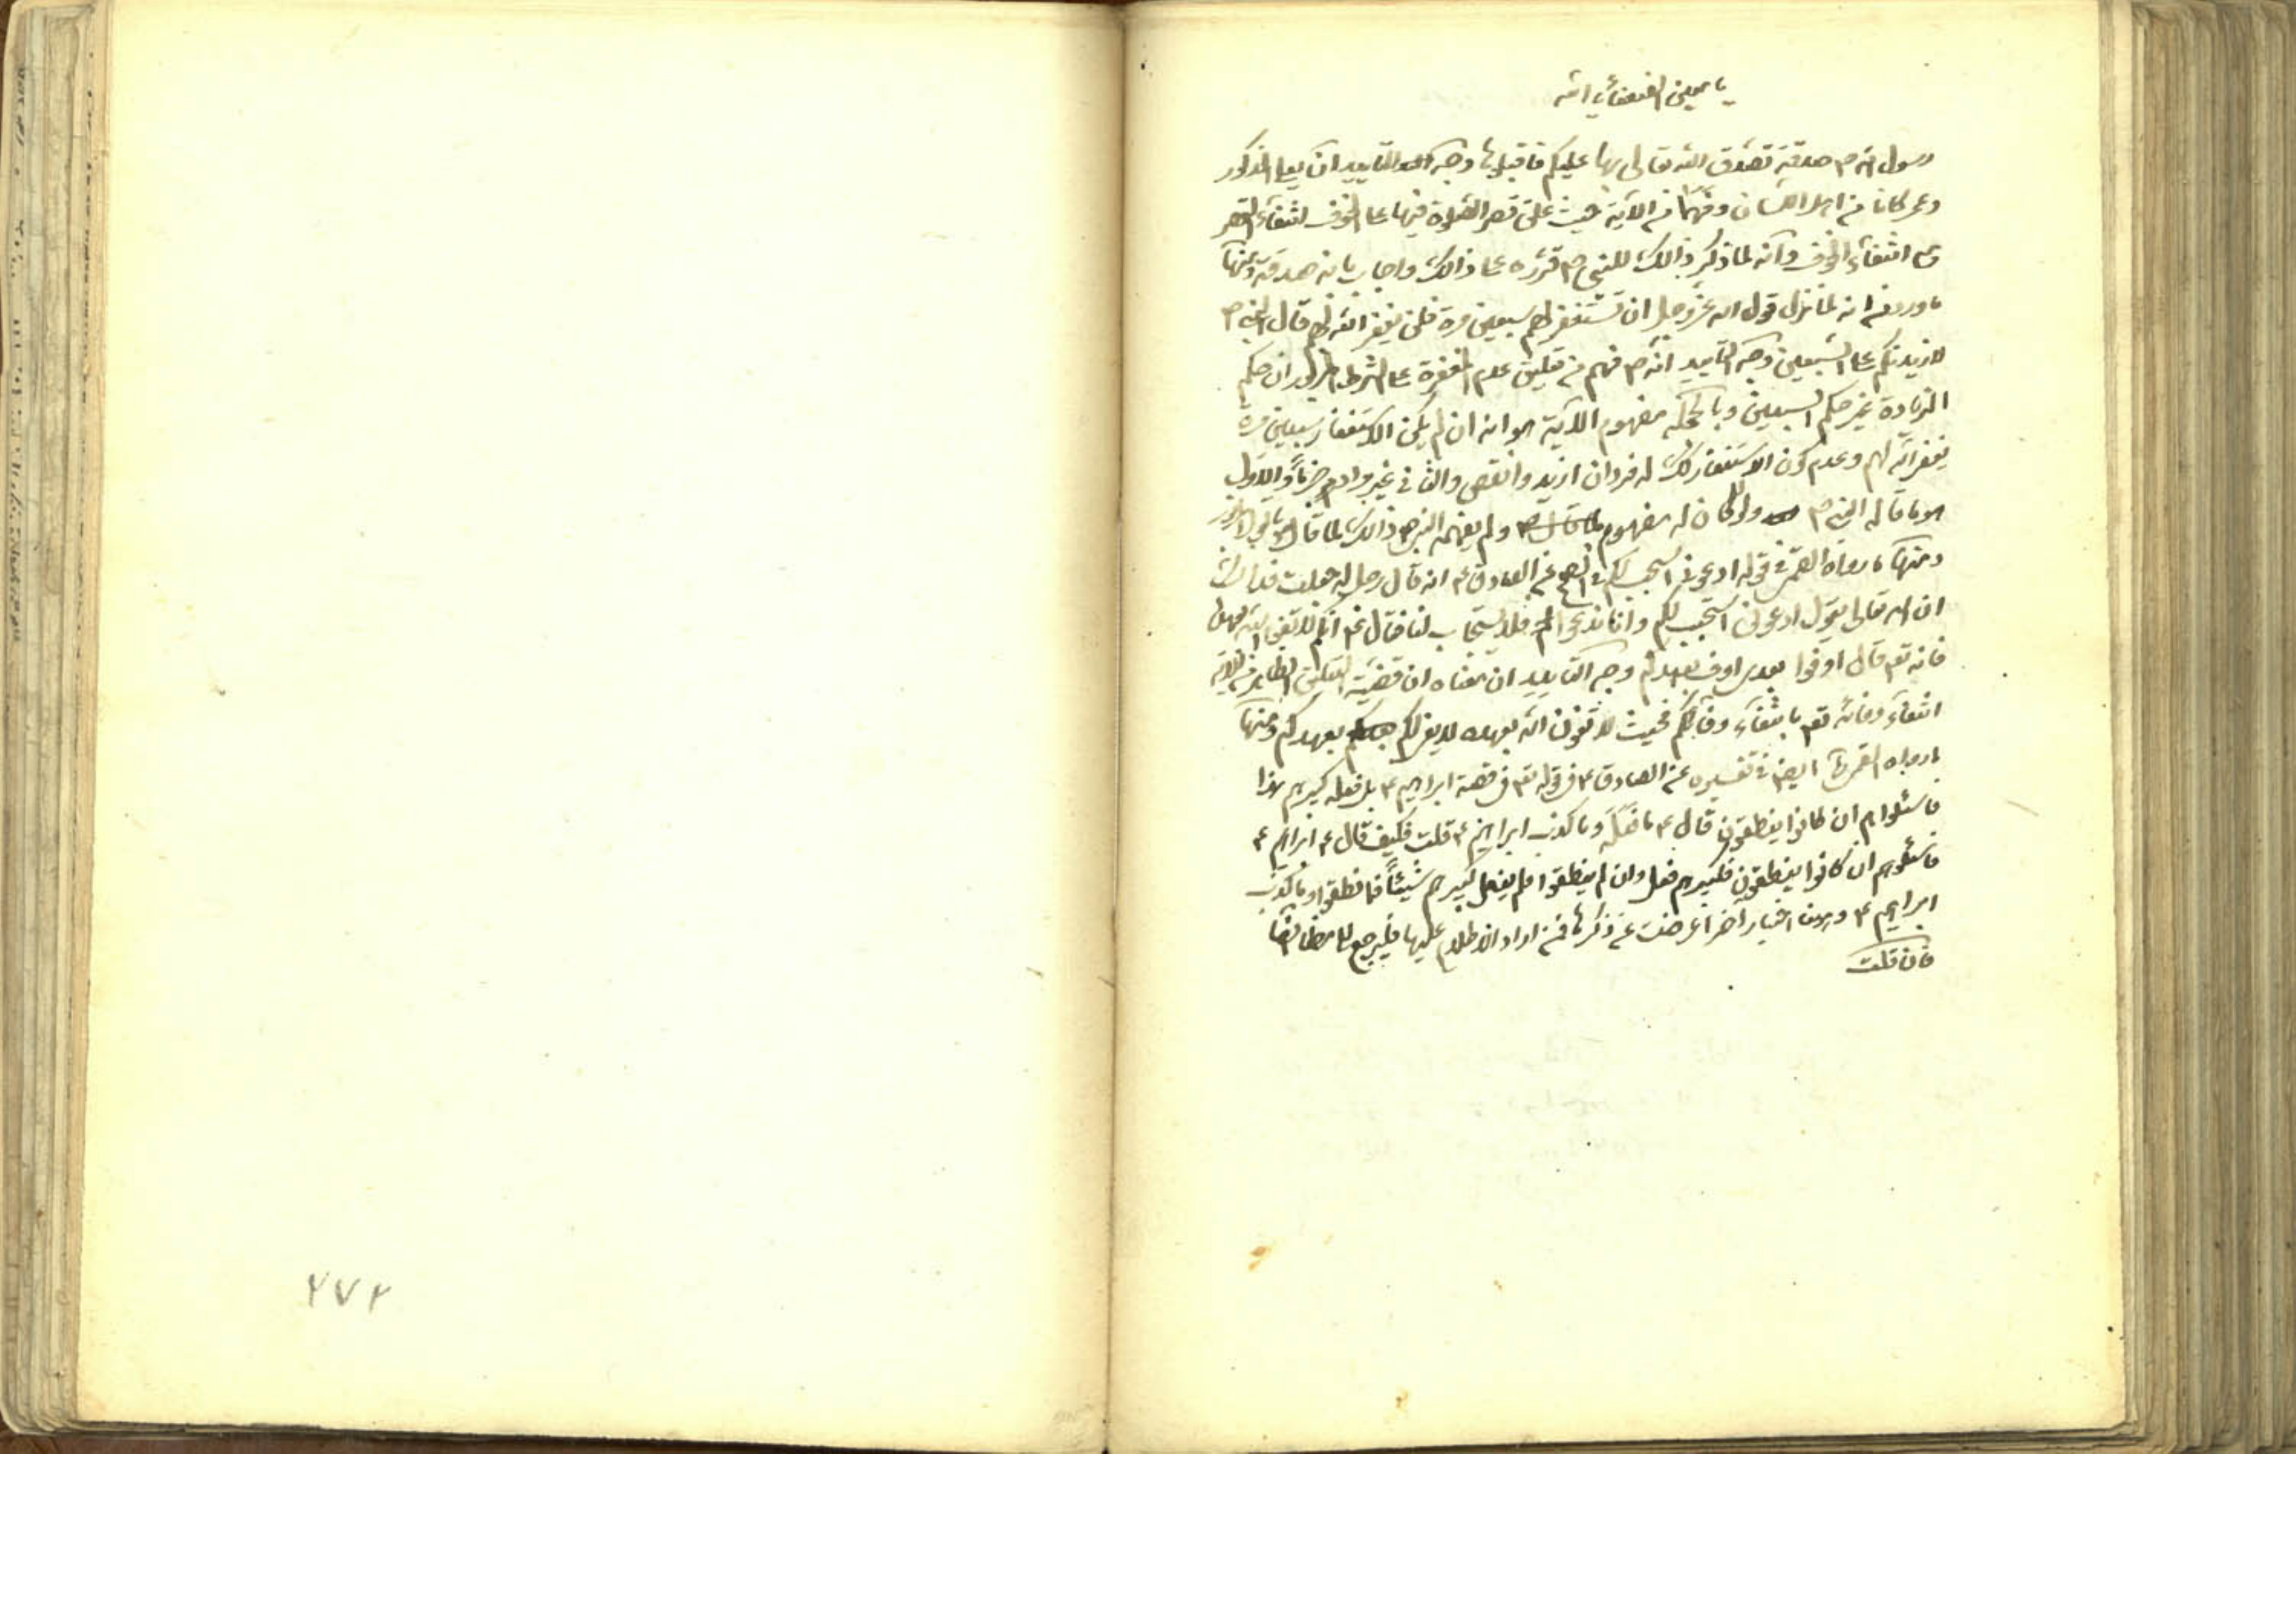 يا معين الضعفاء يا الله
رسول الله ص صدقة تصدق الله تعالى بها عليكم فاقبلوها وجه التأييد ان يعلى المذكور
وعمر كانا من اهل اللسان وفهما من الآية حيث علق قصر الصلوة فيها على الخوف انتفاء القصر
مع انتفاء الخوف وانه لما ذكر ذالك للنبي ص قرره على ذالك واجاب بانه صدقة ومنها
ما ورد من انه لما نزل قول الله عز وجل ان تستغفر لهم سبعين مرة فلن يغفر الله لهم قال النبي ص
لازيدنكم على السبعين وجه التأييد انه ص فهم من تعليق عدم المغفرة على الشرط المذكور ان حكم
الزيادة غير حكم السبعين وبالجملة مفهوم الآية هو انه ان لم يكن الاستغفار سبعين مرة
يغفر الله لهم وعدم كون الاستغفار كك له فردان ازيد وانقص والثاني غير مراد جزماً والاول
هو ما قاله النبي ص ولو كان له مفهوم ولم يفهمه النبي ص ذالك لما قال
ومنها ما رواه القمي في قوله ادعوني استجب لكم عن الصادق ع انه قال رجل له جعلت فداك
ان الله تعالى يقول ادعوني استجب لكم وانا ندعوا فلا يستجاب لنا فقال ع انكم لا تفون لله بعهده
فانه تعم قال اوفوا بعهدي اوف بعهدكم وجه التأييد ان معناه ان قضية التعليق الظاهر من الآية
انتفاء وفائه تعم بانتفاء وفائكم فحيث لا تفون الله بعهده لا يفي لكم بعهدكم ومنها
ما رواه القمي ايضا في تفسيره عن الصادق ع في قوله تعم في قصة ابراهيم ع بل فعله كبيرهم هذا
فاسئلوهم ان كانوا ينطقون قال ع ما فعله وما كذب ابراهيم ع قلت فكيف قال ع ابراهيم ع
فاسئلوهم ان كانوا ينطقون فكبيرهم فعل وان لم ينطقوا فلم يفعل كبيرهم شيئاً فما نطقوا وما كذب
ابراهيم ع وهنا اخبار اخر اعرضت عن ذكرها فمن اراد الاطلاع عليها فليرجع الى مظانها
فان قلت
۲۷۲